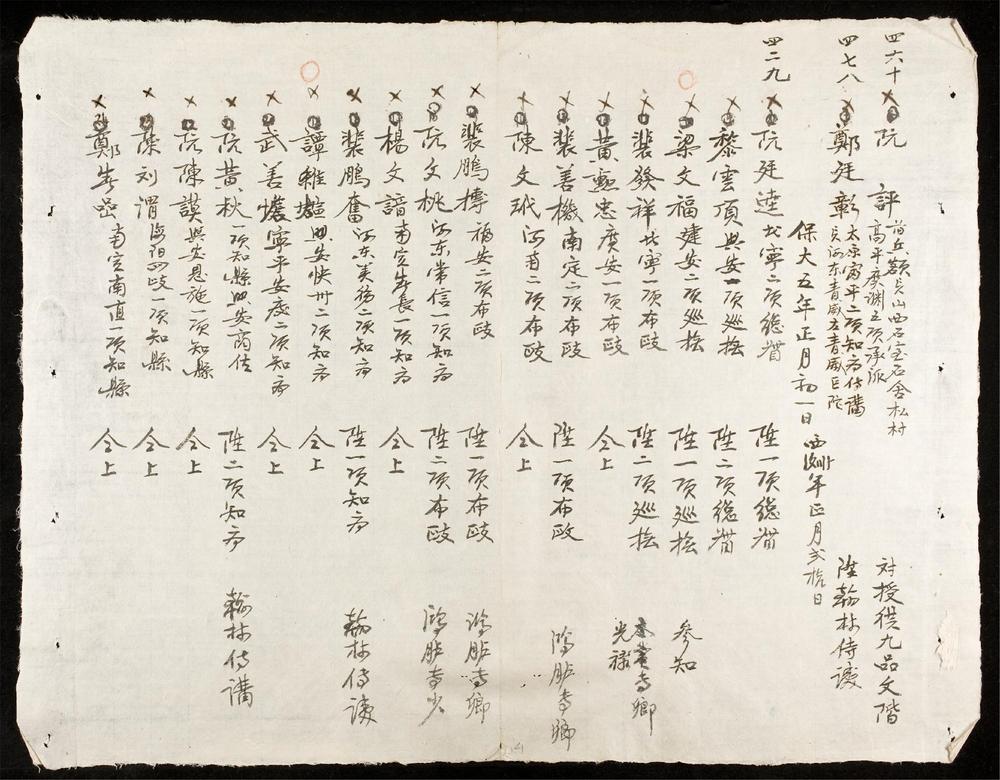 四六十 阮 評 員山西石室石舍松村
高平廣淵五項承派 對授從九品文階
四七八 鄭廷彰 太原富平二項知府侍講
員河东青威左青威 陞翰林侍讀
保大五年正月初一日 西 年正月弍拾日
四二九 阮廷達北寧二項總督 陞一項總督
黎雲頂興安一項巡撫 陞二項總督
梁文福建安二項巡撫 陞一項巡撫 參知
裴發祥北寧一項布政 陞二項巡撫 寺卿
黃 忠廣安一項布政 仝上 光祿
裴善機南定二項布政 陞一項布政 鴻臚寺卿
陳文玳河南二項布政 仝上
裴鵬摶福安二項布政 陞一項布政 鴻臚寺卿
阮文桃河东常信一項知府 陞二項布政 鴻臚寺少
楊文諳南定春長一項知府 仝上
裴鵬奮河东美 二項知府 陞一項知府 翰林侍讀
譚 興安快州二項知府 仝上
武善懷寧平安慶二項知府 仝上
阮黃秋一項知縣興安商佐 陞二項知府 翰林侍講
阮陳謨興安恩施一項知縣 仝上
陳刘渭海阳四岐一項知縣 仝上
鄭 南定南直一項知縣 仝上